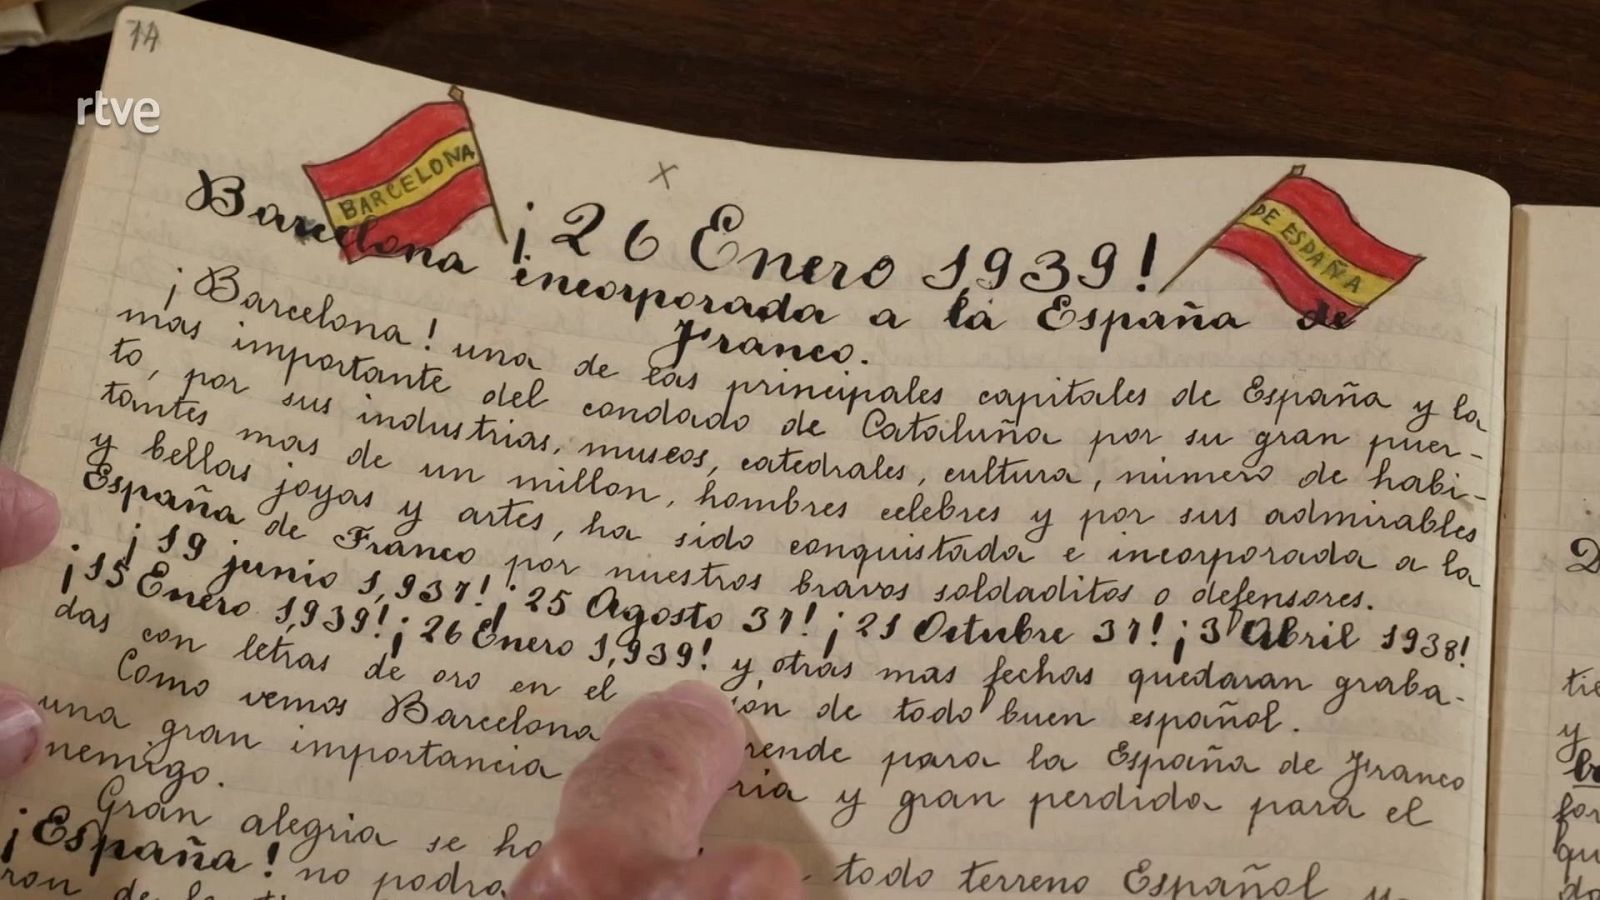 14
rtve
BARCELONA
DE ESPAÑA
x
¡26 Enero 1,939!
Barcelona incorporada a la España de
Franco.
¡Barcelona! una de las principales capitales de España y la
mas importante del condado de Cataluña por su gran puer-
to, por sus industrias, museos, catedrales, cultura, número de habi-
tantes mas de un millon, hombres celebres y por sus admirables
y bellas joyas y artes, ha sido conquistada e incorporada a la
España de Franco por nuestros bravos soldaditos o defensores.
¡19 junio 1,937! ¡25 Agosto 37! ¡21 Octubre 37! ¡3 Abril 1938!
¡15 Enero 1,939! ¡26 Enero 1,939! y otras mas fechas quedaran graba-
das con letras de oro en el ión de todo buen español.
Como vemos Barcelona rende para la España de Franco
una gran importancia ria y gran perdida para el
nemigo.
Gran alegria se ha todo terreno Español y
¡España! no podra
ron de
D
tie
y
for
qu
do